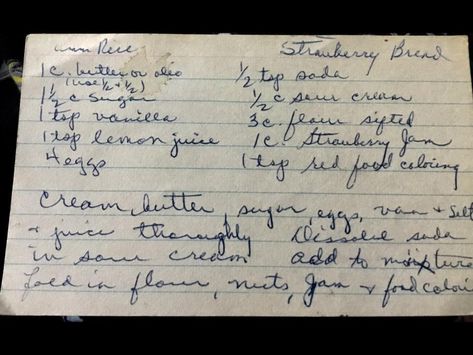 Ann Rice Strawberry Bread
1 c. butter or oleo 1/2 tsp soda
(use 1/2 + 1/2)
1 1/2 c sugar 1/2 c sour cream
1 tsp vanilla 3 c. flour sifted
1 tsp lemon juice 1 c. Strawberry Jam
4 eggs 1 tsp red food coloring
Cream butter, sugar, eggs, van + salt
+ juice thoroughly Dissolve soda
in sour cream add to mixture
fold in flour, nuts, Jam + food colori